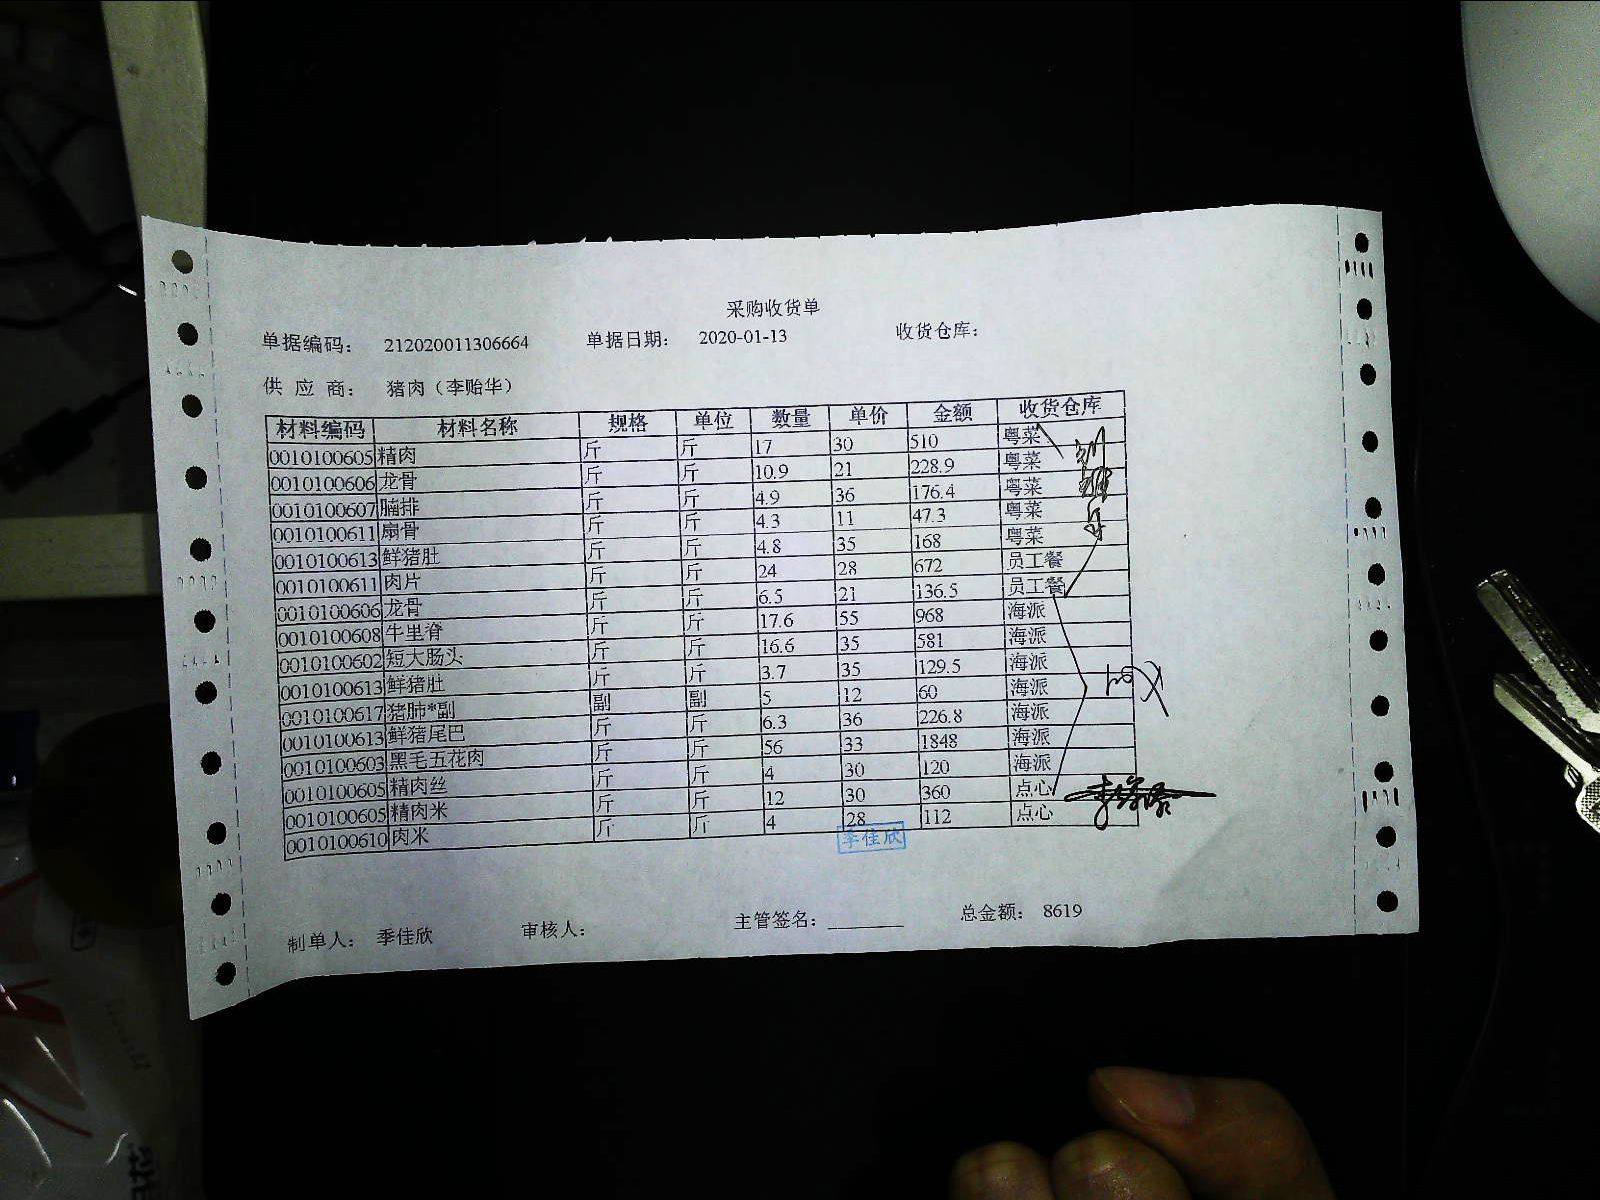 采购收货单
单据编码： 212020011306664 单据日期： 2020-01-13 收货仓库：
供 应 商： 猪肉（李贻华）
材料编码 材料名称 规格 单位 数量 单价 金额 收货仓库
0010100605 精肉 斤 斤 17 30 510 粤菜
0010100606 龙骨 斤 斤 10.9 21 228.9 粤菜
0010100607 腩排 斤 斤 4.9 36 176.4 粤菜
0010100611 扇骨 斤 斤 4.3 11 47.3 粤菜
0010100613 鲜猪肚 斤 斤 4.8 35 168 粤菜
0010100611 肉片 斤 斤 24 28 672 员工餐
0010100606 龙骨 斤 斤 6.5 21 136.5 员工餐
0010100608 牛里脊 斤 斤 17.6 55 968 海派
0010100602 短大肠头 斤 斤 16.6 35 581 海派
0010100613 鲜猪肚 斤 斤 3.7 35 129.5 海派
0010100617 猪肺*副 副 副 5 12 60 海派
0010100613 鲜猪尾巴 斤 斤 6.3 36 226.8 海派
0010100603 黑毛五花肉 斤 斤 56 33 1848 海派
0010100605 精肉丝 斤 斤 4 30 120 海派
0010100605 精肉米 斤 斤 12 30 360 点心
0010100610 肉米 斤 斤 4 28 112 点心
季佳欣
制单人： 季佳欣 审核人： 主管签名：________ 总金额： 8619